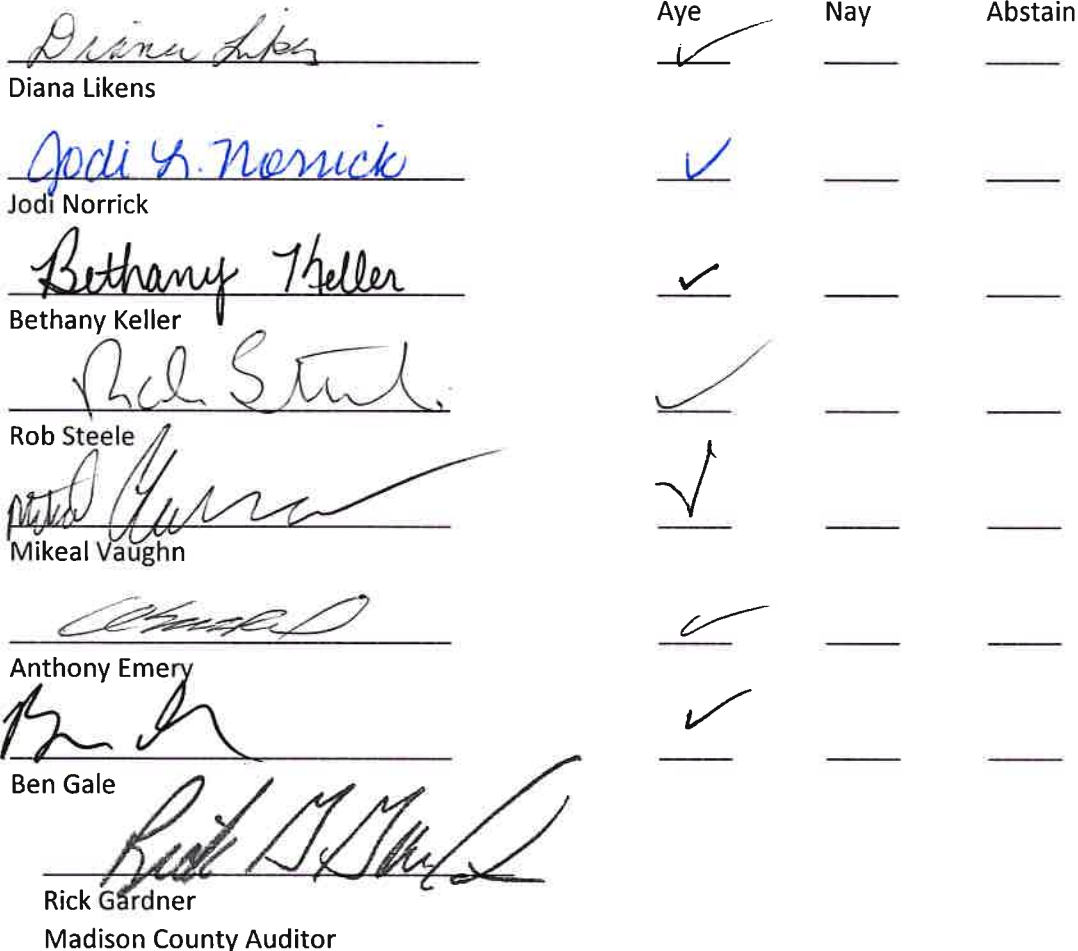 Aye Nay Abstain
Diana Likens ✓
Diana Likens
Jodi L. Norrick ✓
Jodi Norrick
Bethany Keller ✓
Bethany Keller
✓
Rob Steele
✓
Mikeal Vaughn
✓
Anthony Emery
✓
Ben Gale
Rick Gardner
Madison County Auditor